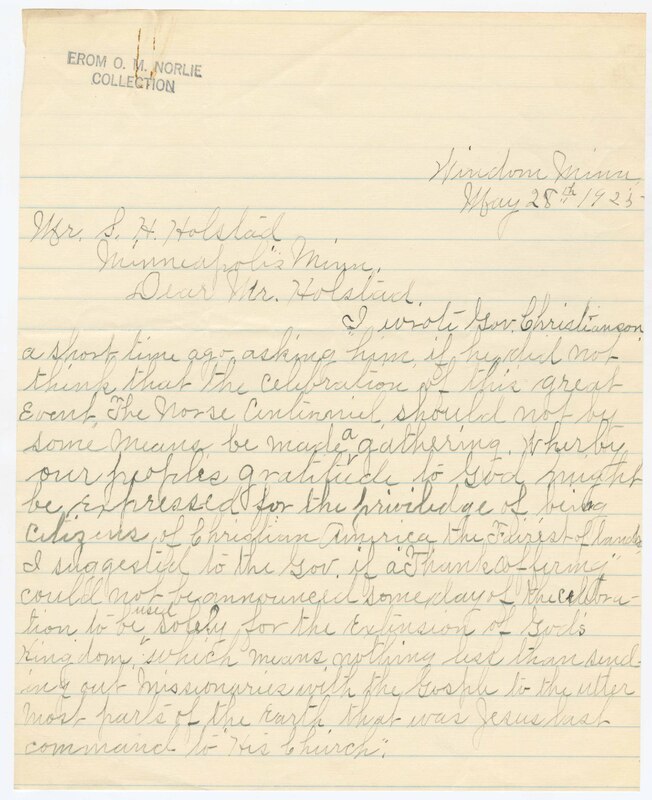 FROM O. M. NORLIE
COLLECTION
Windom Minn,
May 28th 1925
Mr. S. H. Holstad
Minneapolis Minn.
Dear Mr. Holstad
I wrote Gov. Christianson
a short time ago, asking him, if he did not
think that the celebration of this great
Event, The Norse Centinnial should not by
some means be made a gathering. Wherby
our peoples gratitude to God might
be expressed for the priviledge of being
Citizens of Christian America the Fairest of lands
I suggested to the Gov. if a "Thankoffering"
could not be announced some day of the celebra-
tion to be used solely for the Extension of God's
Kingdom," which means nothing less than send-
ing out Missionaries with the Gosple to the utter
most parts of the Earth that was Jesus last
command to "His Church".